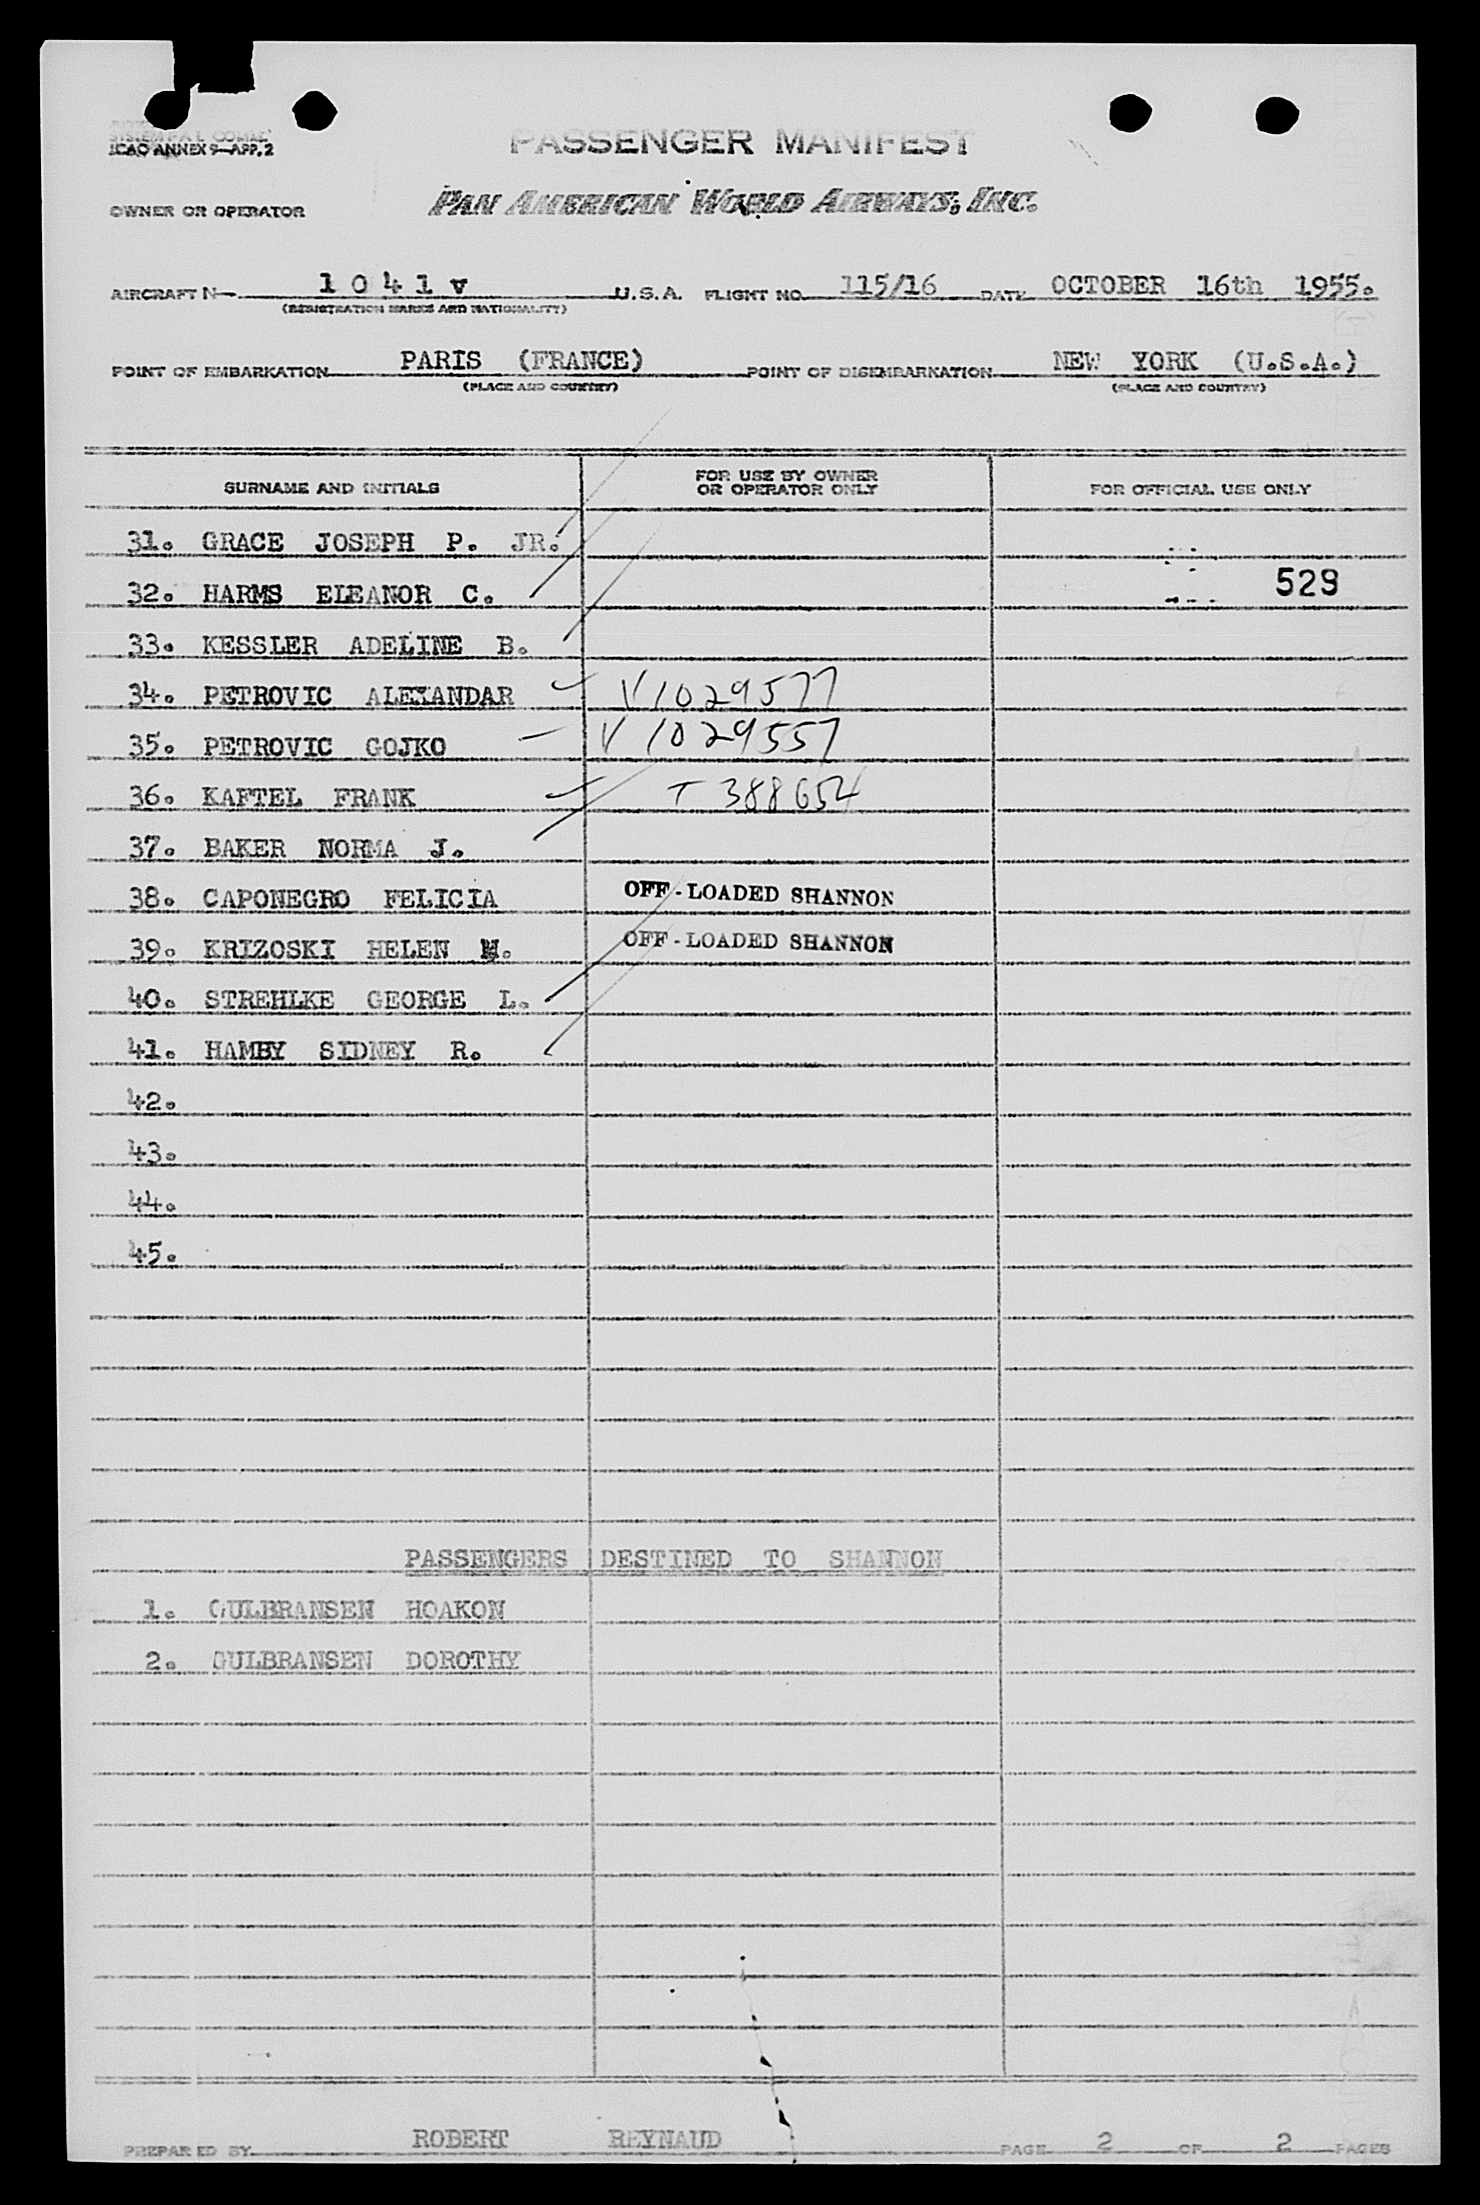 ICAO ANNEX 9—APP. 2
PASSENGER MANIFEST
OWNER OR OPERATOR PAN AMERICAN WORLD AIRWAYS, INC.
AIRCRAFT N— 1 0 4 1 v U.S.A. FLIGHT NO. 115/16 DATE OCTOBER 16th 1955.
(REGISTRATION MARKS AND NATIONALITY)
POINT OF EMBARKATION PARIS (FRANCE) POINT OF DISEMBARKATION NEW YORK (U.S.A.)
(PLACE AND COUNTRY) (PLACE AND COUNTRY)
SURNAME AND INITIALS
FOR USE BY OWNER
OR OPERATOR ONLY
FOR OFFICIAL USE ONLY
31. GRACE JOSEPH P. JR.
32. HARMS ELEANOR C. 529
33. KESSLER ADELINE B.
34. PETROVIC ALEXANDAR V1029577
35. PETROVIC GOJKO V 1029557
36. KAFTEL FRANK T 388654
37. BAKER NORMA J.
38. CAPONEGRO FELICIA OFF-LOADED SHANNON
39. KRIZOSKI HELEN M. OFF-LOADED SHANNON
40. STREHLKE GEORGE L.
41. HAMBY SIDNEY R.
42.
43.
44.
45.
PASSENGERS DESTINED TO SHANNON
1. GULBRANSEN HOAKON
2. GULBRANSEN DOROTHY
PREPARED BY ROBERT REYNAUD PAGE 2 OF 2 PAGES